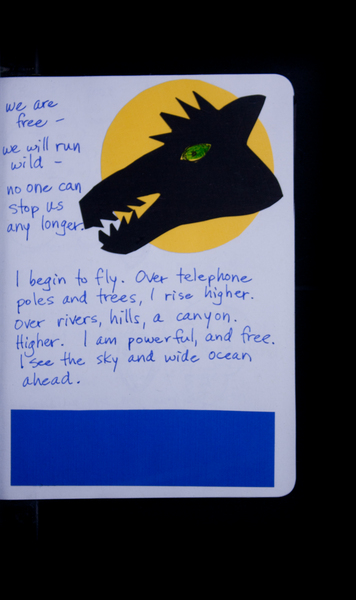 we are
free –
we will run
wild –
no one can
stop us
any longer.
I begin to fly. Over telephone
poles and trees, I rise higher.
Over rivers, hills, a canyon.
Higher. I am powerful, and free.
I see the sky and wide ocean
ahead.